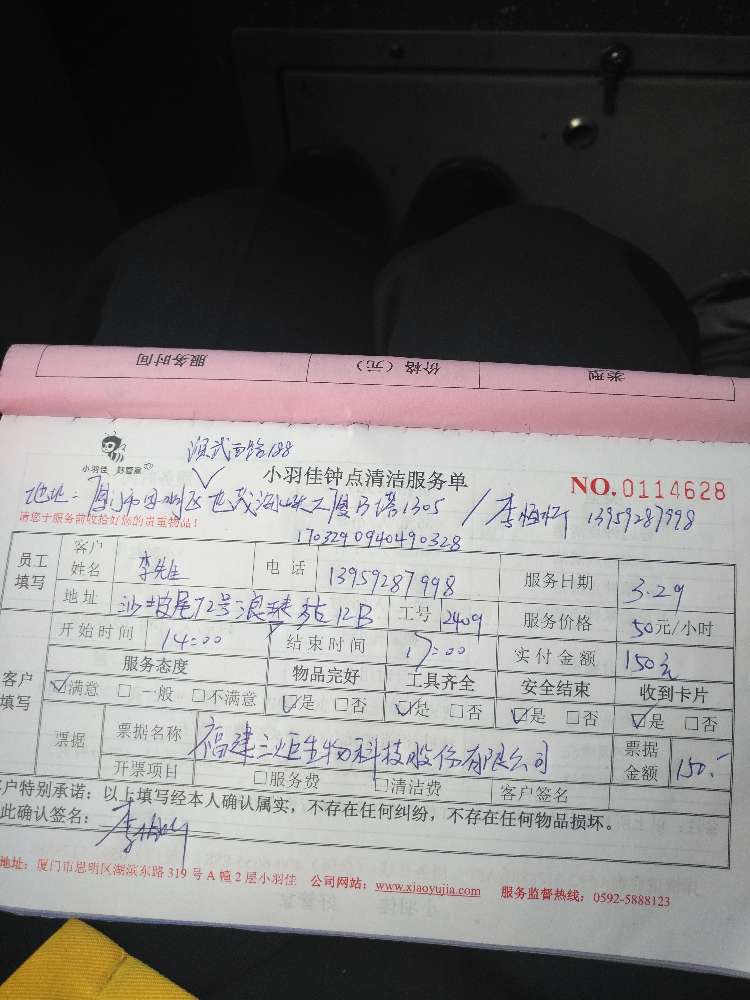 服务时间 价格（元） 类型
小羽佳 好管家
西路188
小羽佳钟点清洁服务单
NO.0114628
地址：厦 B塔1305 / 李 13959287998
请您于服务前收拾好您的贵重物品！
170329094049 0328
员工填写 客户姓名 李先生 电话 13959287998 服务日期 3.29
地址 沙坡尾72号浪琴 12B 工号 2409 服务价格 50元/小时
开始时间 14:00 结束时间 17:00 实付金额 150元
客户填写 服务态度 物品完好 工具齐全 安全结束 收到卡片
☑满意 □一般 □不满意 ☑是 □否 ☑是 □否 ☑是 □否 ☑是 □否
票据 票据名称 福建三炬生物科技股份有限公司 票据金额 150.-
开票项目 □服务费 □清洁费 客户签名
客户特别承诺：以上填写经本人确认属实，不存在任何纠纷，不存在任何物品损坏。
此确认签名：
地址：厦门市思明区湖滨东路319号A幢2层小羽佳 公司网站：www.xiaoyujia.com 服务监督热线：0592-5888123